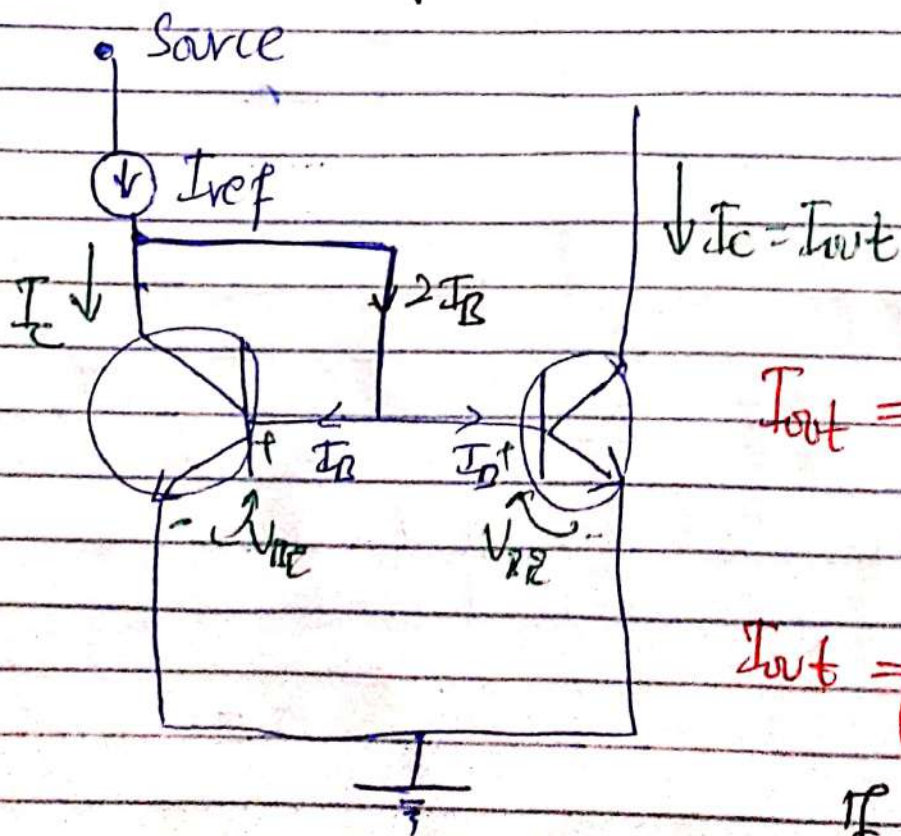 Source
Iref
Ic
2IB
Ic - Iout
IB
IB
+
+
-
-
VBE
VBE
Iout =
Iout =
If